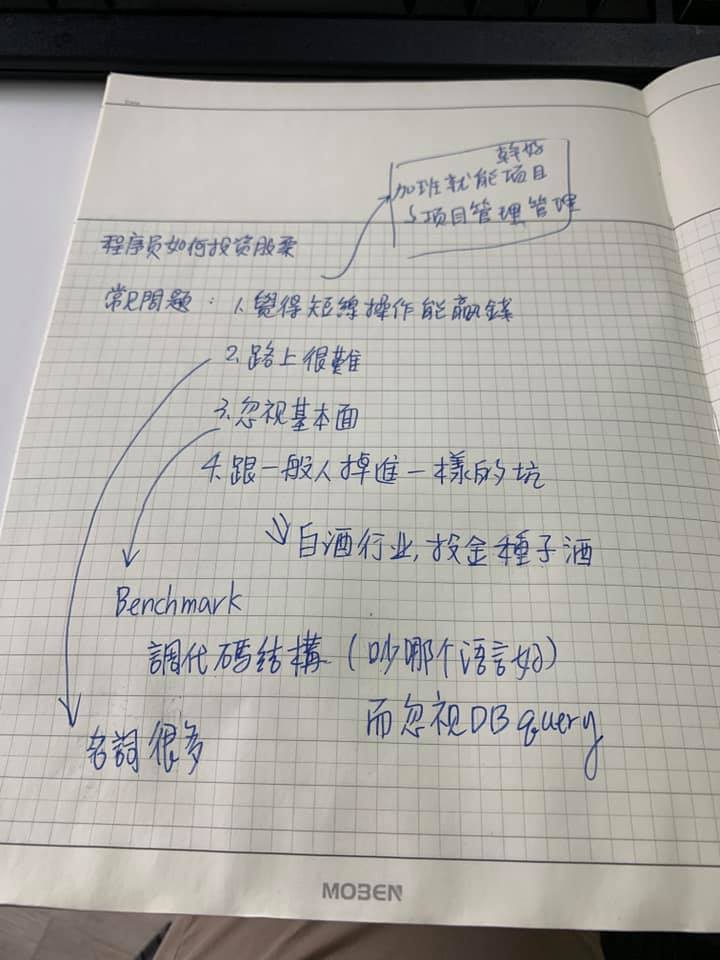 幹好
加班就能项目
↳项目管理管理
程序员如何投资股票
常見問題：1.覺得短線操作能贏錢
2.路上很難
3.忽视基本面
4.跟一般人掉進一樣的坑
白酒行业,投金種子酒
Benchmark
調代碼结構 (吵哪个语言好)
而忽视DB query
名詞很多
MOBEN